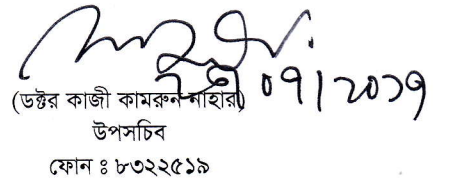 ০৭|২০১৭
(ডক্টর কাজী কামরুন নাহার)
উপসচিব
ফোন ঃ ৮৩২২৫১৯